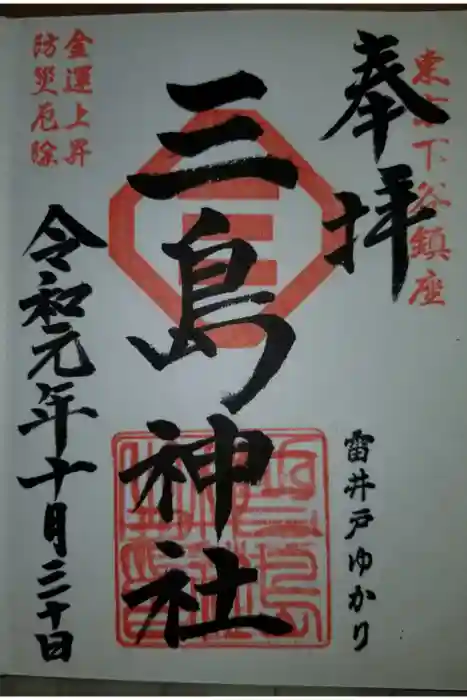 東京下谷鎮座
奉拝
雷井戸ゆかり
三島神社
金運上昇
防災厄除
令和元年十月三十日